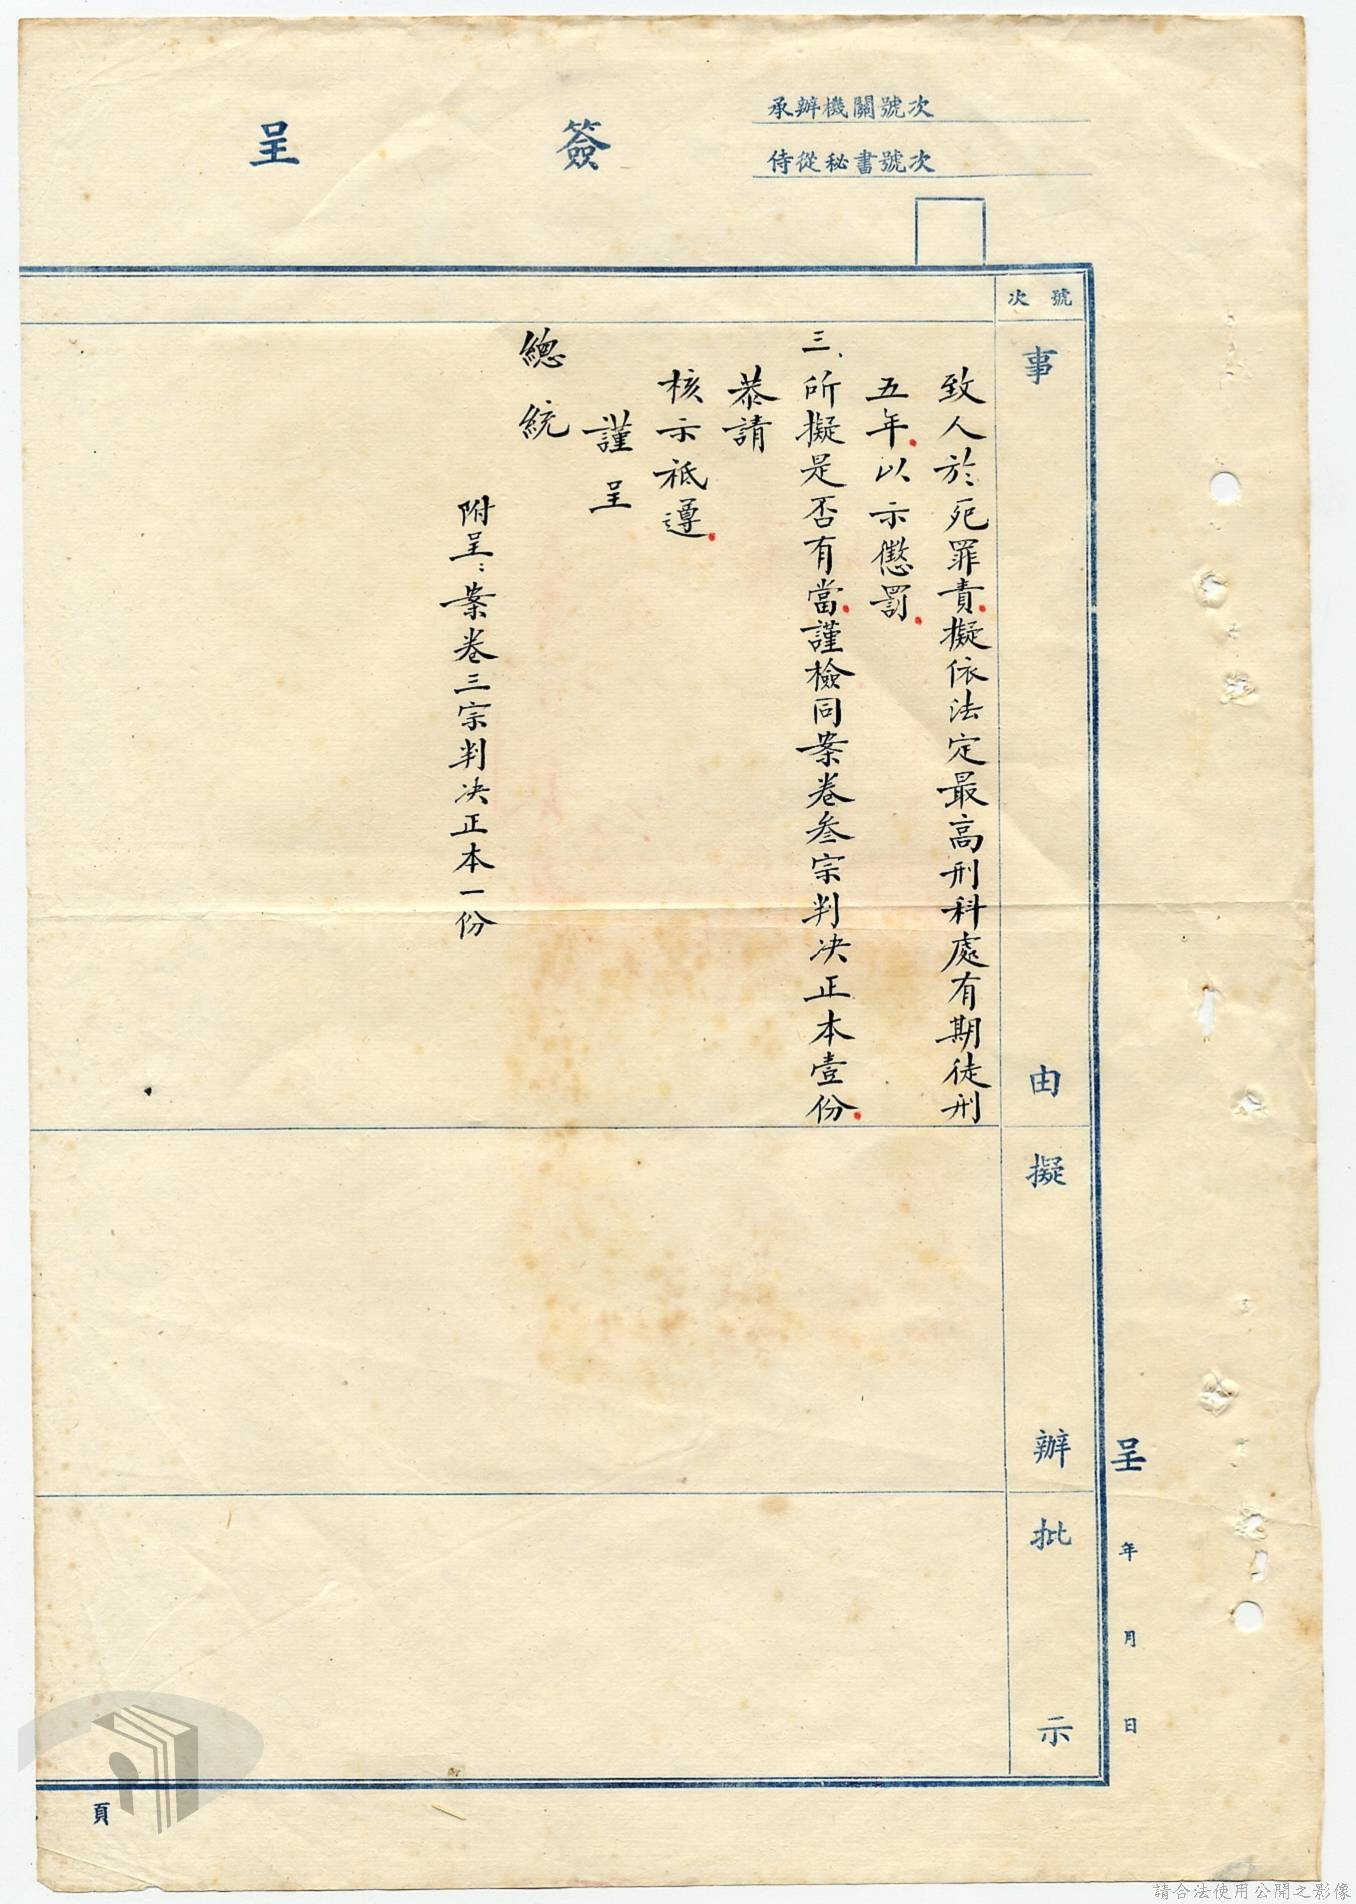 承辦機關號次
侍從秘書號次
簽呈
號次
事由
擬辦
批示
呈
年
月
日
致人於死罪責擬依法定最高刑科處有期徒刑
五年以示懲罰
三、所擬是否有當謹檢同案卷叁宗判决正本壹份
恭請
核示祗遵
謹呈
總統
附呈：案卷三宗判决正本一份
頁
請合法使用公開之影像